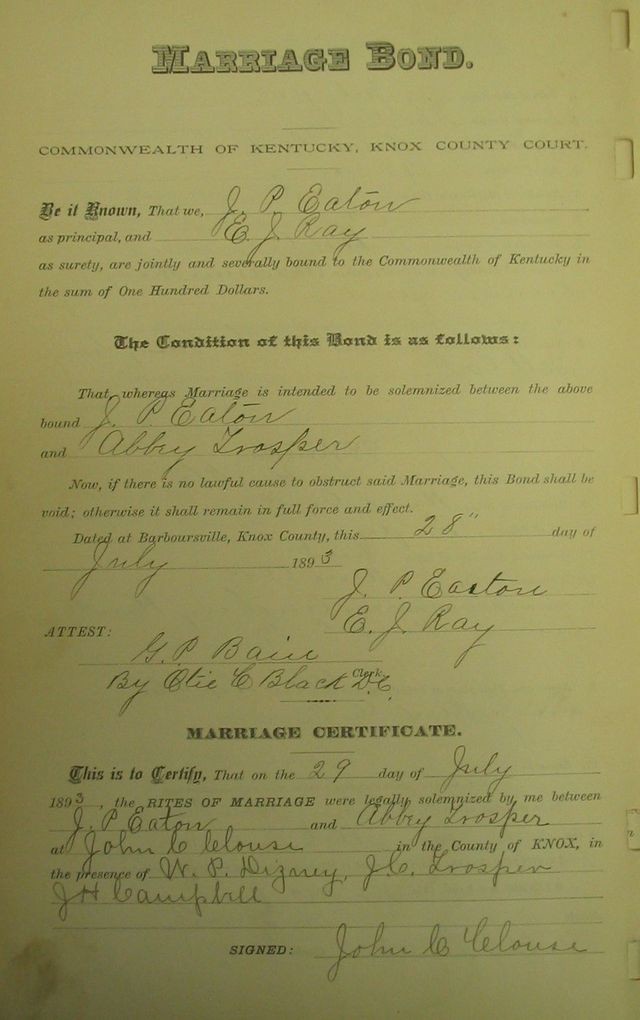 MARRIAGE BOND.
COMMONWEALTH OF KENTUCKY, KNOX COUNTY COURT.
Be it Known, That we, J. P. Eaton
as principal, and E. J. Ray
as surety, are jointly and severally bound to the Commonwealth of Kentucky in
the sum of One Hundred Dollars.
The Condition of this Bond is as follows:
That whereas Marriage is intended to be solemnized between the above
bound J. P. Eaton
and Abbey Trosper
Now, if there is no lawful cause to obstruct said Marriage, this Bond shall be
void; otherwise it shall remain in full force and effect.
Dated at Barboursville, Knox County, this 28" day of
July 1893
J. P. Easton
E. J. Ray
ATTEST:
G. P. Clerk
By Otie C Black D.C.
MARRIAGE CERTIFICATE.
This is to Certify, That on the 29 day of July
1893, the RITES OF MARRIAGE were legally solemnized by me between
J. P. Eaton and Abbey Trosper
at John C Clouse in the County of KNOX, in
the presence of W. P. Dizney, J.C. Trosper
J H Campbell
SIGNED: John C Clouse